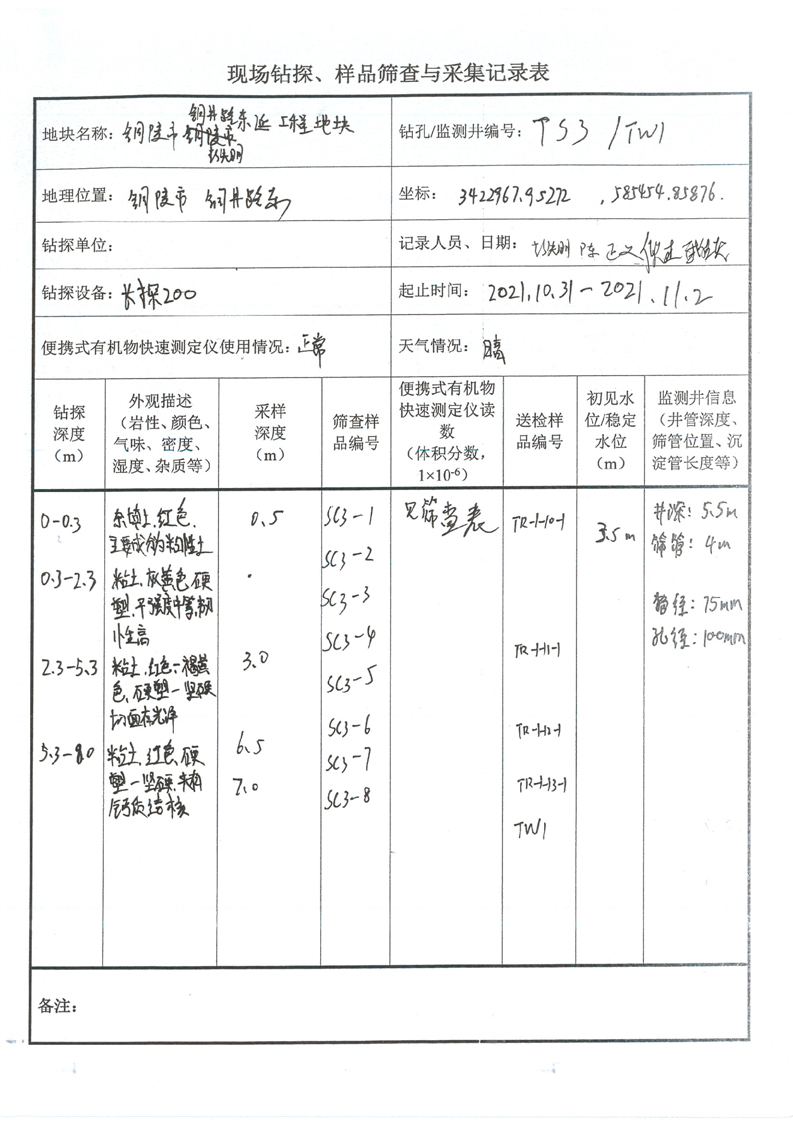 现场钻探、样品筛查与采集记录表
地块名称：铜陵市铜井路东延工程地块
铜陵市
彭先明
钻孔/监测井编号：TS3/TW1
地理位置：铜陵市 铜井路东
坐标：3422967.95272，585454.85876.
钻探单位：
记录人员、日期：彭先明 陈正文
钻探设备：长探200
起止时间：2021.10.31－2021.11.2
便携式有机物快速测定仪使用情况：正常
天气情况：晴
钻探
深度
（m）
外观描述
（岩性、颜色、
气味、密度、
湿度、杂质等）
采样
深度
（m）
筛查样
品编号
便携式有机物
快速测定仪读
数
（体积分数，
1×10⁻⁶）
送检样
品编号
初见水
位/稳定
水位
（m）
监测井信息
（井管深度、
筛管位置、沉
淀管长度等）
0-0.3
杂填土、红色、
主要成份为粉粘土
0.3-2.3
粘土、灰黄色、硬
塑、干强度中等、韧
性高
2.3-5.3
粘土、红色－褐黄
色、硬塑－坚硬
切面有光泽
5.3-8.0
粘土、红色、硬
塑－坚硬、夹有
钙质结核
0.5
3.0
6.5
7.0
SC3-1
SC3-2
SC3-3
SC3-4
SC3-5
SC3-6
SC3-7
SC3-8
见筛查表
TR-1-10-1
TR-1-11-1
TR-1-12-1
TR-1-13-1
TW1
3.5m
井深：5.5m
筛管：4m
管径：75mm
孔径：100mm
备注：